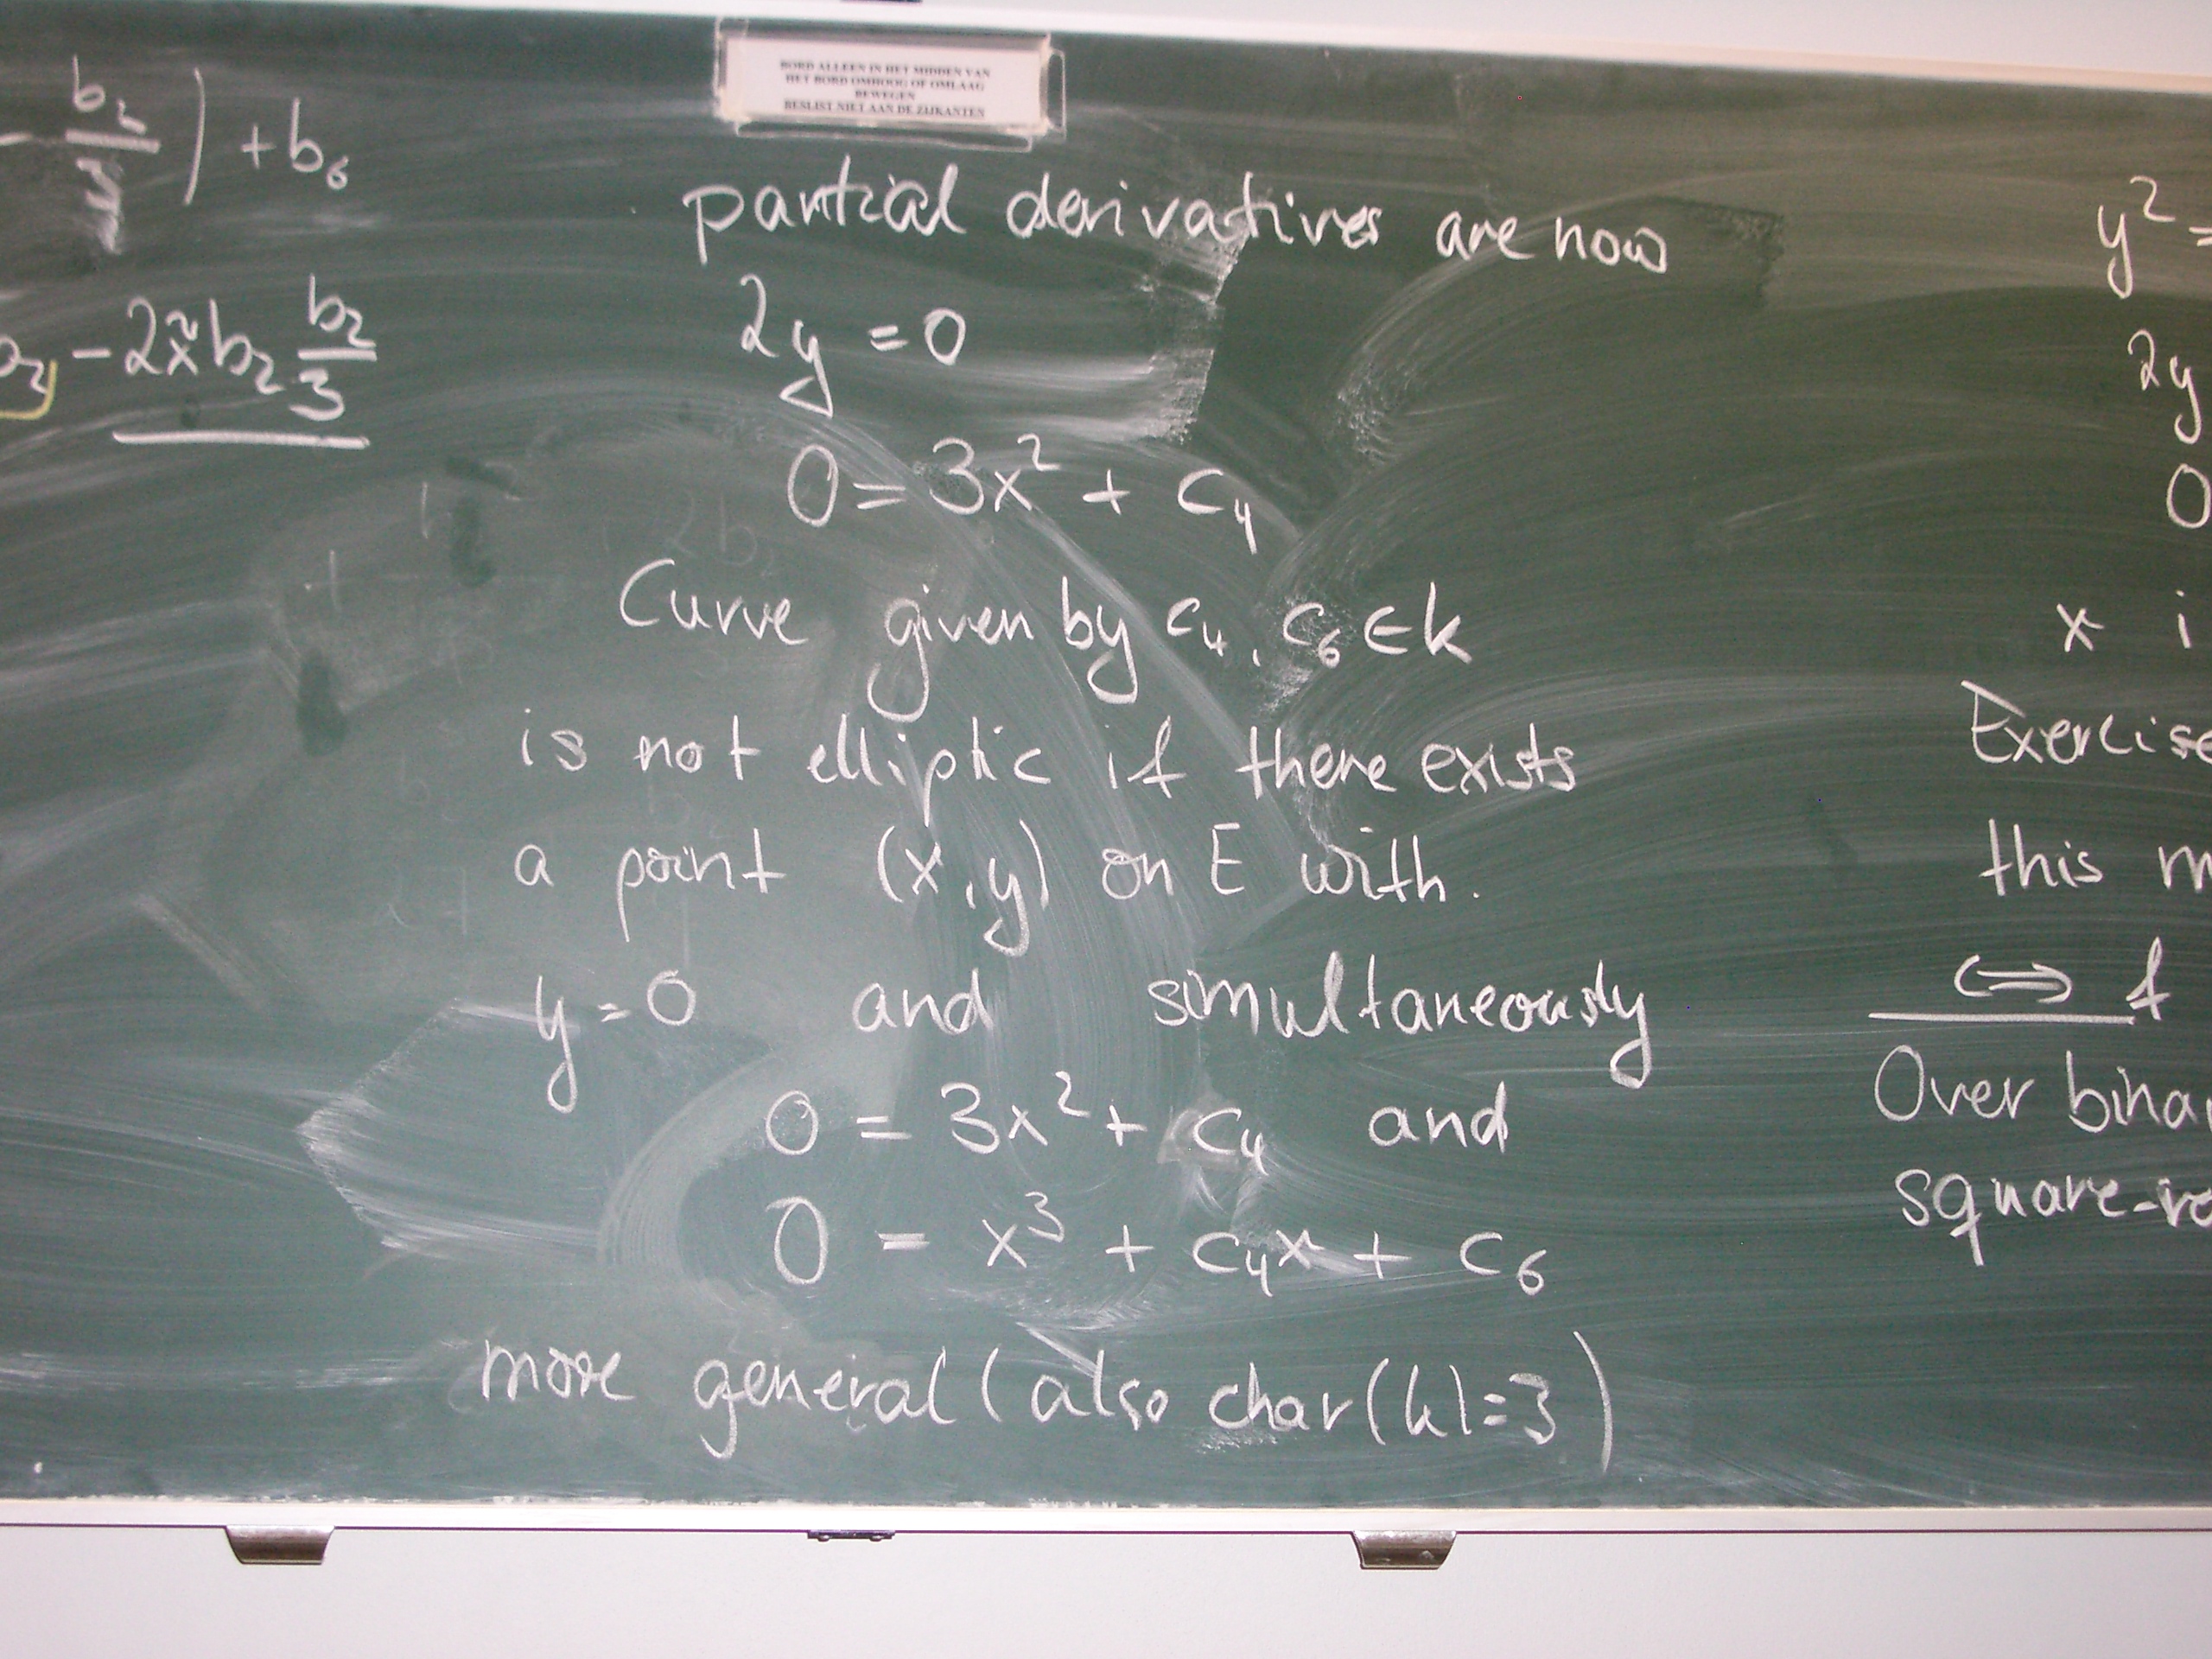 BORD ALLEEN IN HET MIDDEN VAN
HET BORD OMHOOG OF OMLAAG
BEWEGEN
BESLIST NIET AAN DE ZIJKANTEN
- b₂/3) + b₆
- 2x²b₂ b₂/3
partial derivatives are now
2y = 0
0 = 3x² + c₄
Curve given by c₄, c₆ ∈ k
is not elliptic if there exists
a point (x,y) on E with.
y = 0 and simultaneously
0 = 3x² + c₄ and
0 = x³ + c₄x + c₆
more general (also char(k)=3)
y² =
2y
0
x i
Exercise
this m
⟺ f
Over bina
square-ro